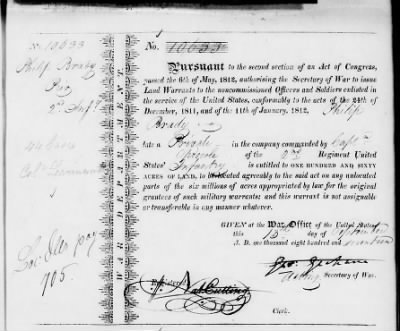 No. 10633
Philip Brady
2d
No. 10633
Pursuant to the second section of an Act of Congress,
passed the 6th of May, 1812, authorising the Secretary of War to issue
Land Warrants to the noncommissioned Officers and Soldiers enlisted
in the service of the United States, conformably to the acts of the 24th of
December, 1811, and of the 11th of January, 1812, Philip
Brady
late a Private in the company commanded by Captn
of the 2nd Regiment United
States' Infantry is entitled to ONE HUNDRED AND SIXTY
ACRES OF LAND, to be located agreeably to the said act on any unlocated
parts of the six millions of acres appropriated by law for the original
grantees of such military warrants; and this warrant is not assignable
or transferable in any manner whatever.
GIVEN at the War Office of the United States
this day of
A. D. one thousand eight hundred and
Geo: Graham
Acting Secretary of War.
Nat Cutting
Clerk.
WAR DEPARTMENT.
705